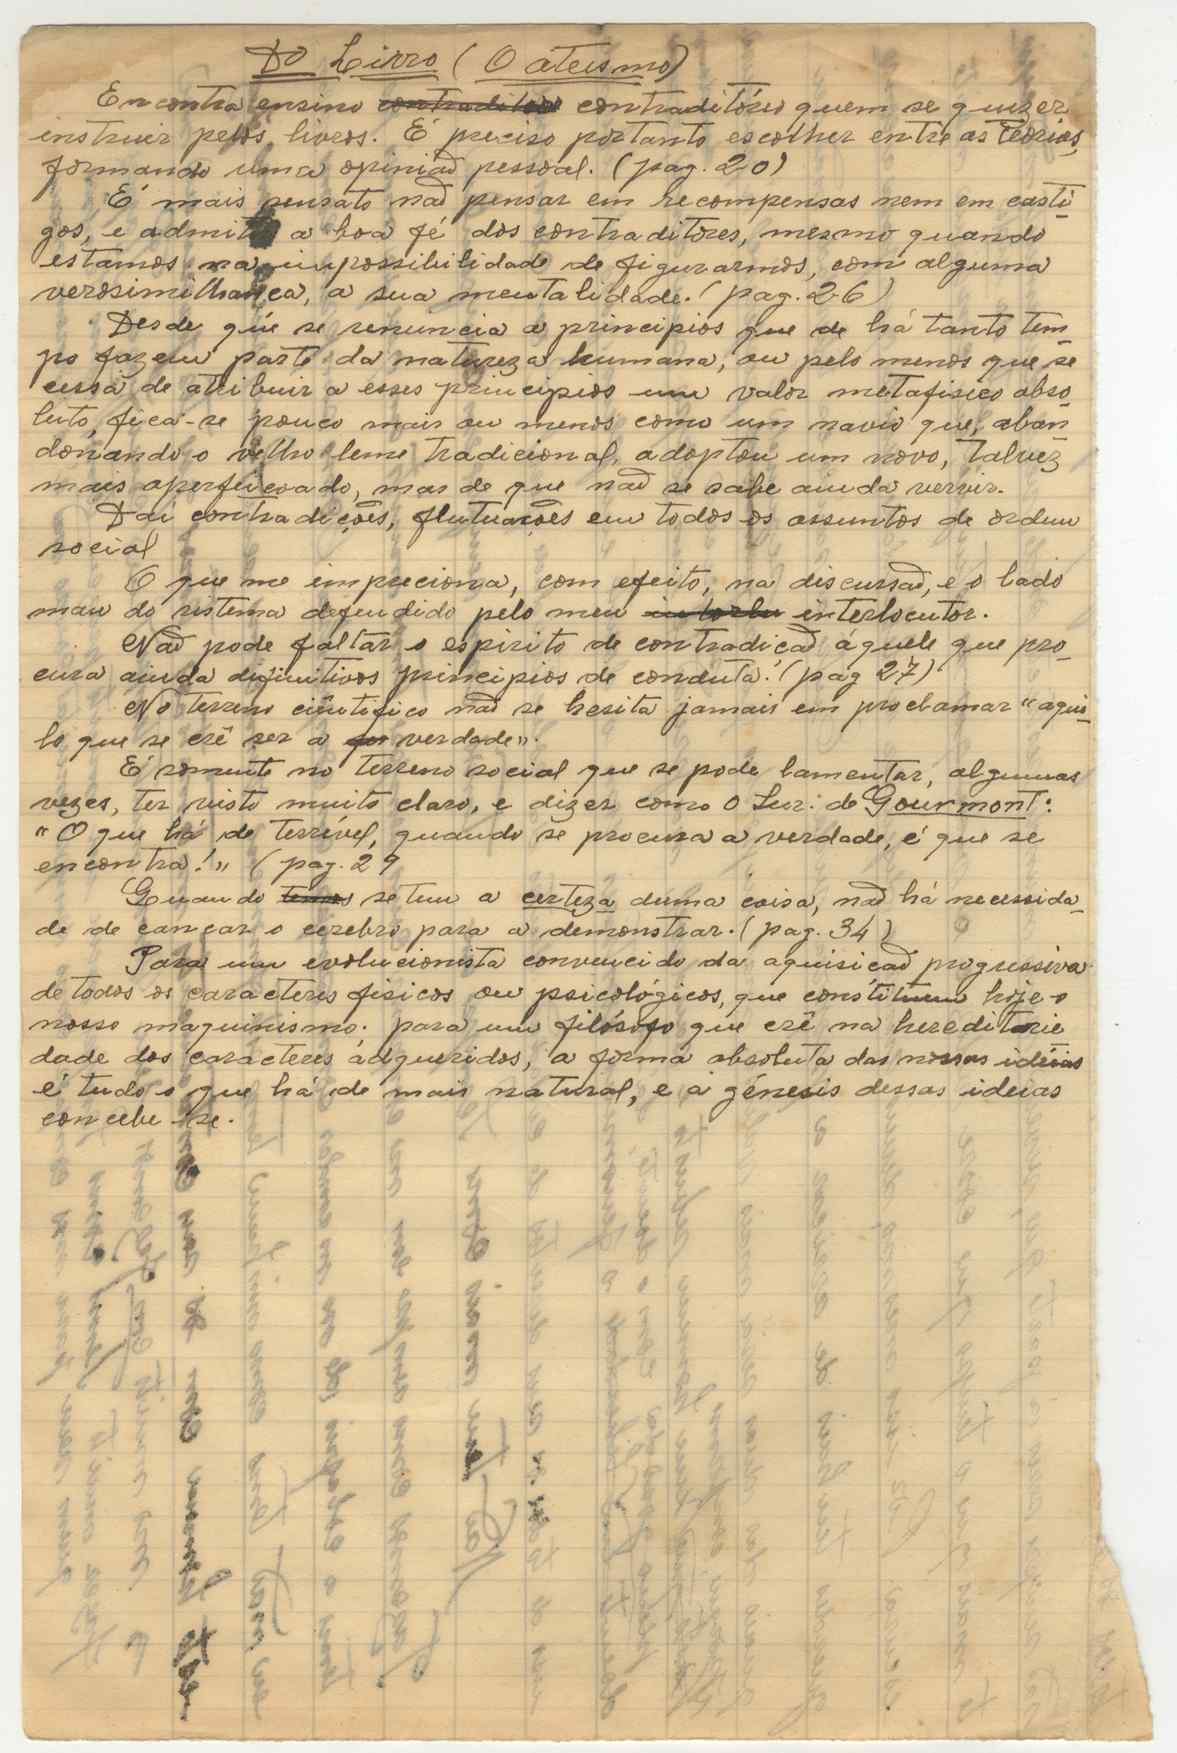 Do Livro (O ateismo)
Encontra ensino contraditóreo quem se quizer
instruir pelos livros. É preciso portanto escolher entre as teorias,
formando uma opiniaõ pessoal. (pag. 20)
É mais sensato naõ pensar em recompensas nem em casti-
gos, e admitir a boa fé dos contraditores, mesmo quando
estamos na impossibilidade de figurarmos, com alguma
verosimilhança, a sua mentalidade. (pag. 26)
Desde que se renuncia a principios que de há tanto tem-
po fazem parte da natureza humana, ou pelo menos que se
cessa de atribuir a esses principios um valor metafisico abso-
luto, fica-se pouco mais ou menos como um navio que, aban-
donando o velho leme tradicional, adoptou um novo, talvez
mais aperfeiçoado, mas de que naõ se sabe ainda servir.
Daí contradições, flutuações em todos os assuntos de ordem
social
O que me impreciona, com efeito, na discursaõ, e o lado
mau do sistema defendido pelo meu interlocutor.
Naõ pode faltar o espirito de contradicaõ áquele que pro-
cura ainda difinitivos principios de conduta! (pag 27)
No terreno ciêntifico naõ se hesita jamais em proclamar "aqui-
lo que se crê ser a verdade".
É somente no terreno social que se pode lamentar, algumas
vezes, ter visto muito claro, e dizer como o Snr. de Gourmont:
"O que há de terrível, quando se procura a verdade, é que se
encontra!" (pag. 29
Quando se tem a certeza duma coisa, naõ há necessida-
de de cançar o cerebro para a demonstrar. (pag. 34)
Para um evolucionista convencido da aquisicaõ progressiva
de todos os caracteres fisicos ou psicológicos, que constituem hoje o
nosso maquinismo. para um filósofo que crê na hereditarie
dade dos caracteres ádqueridos, a forma absoluta das nossas ideias
é tudo o que há de mais natural, e a génesis dessas ideias
concebe-se.